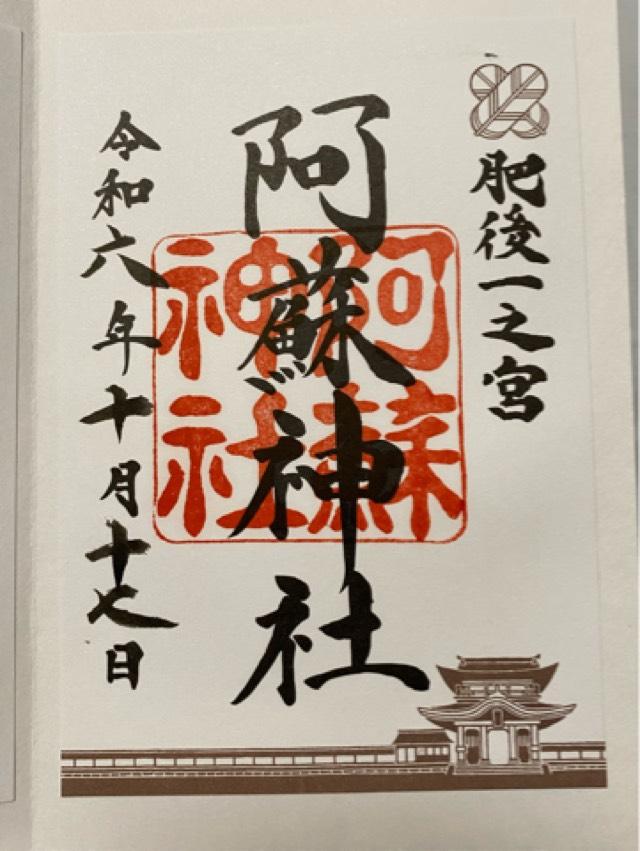 肥後一之宮
阿蘇神社
阿蘇神社
令和六年十月十七日